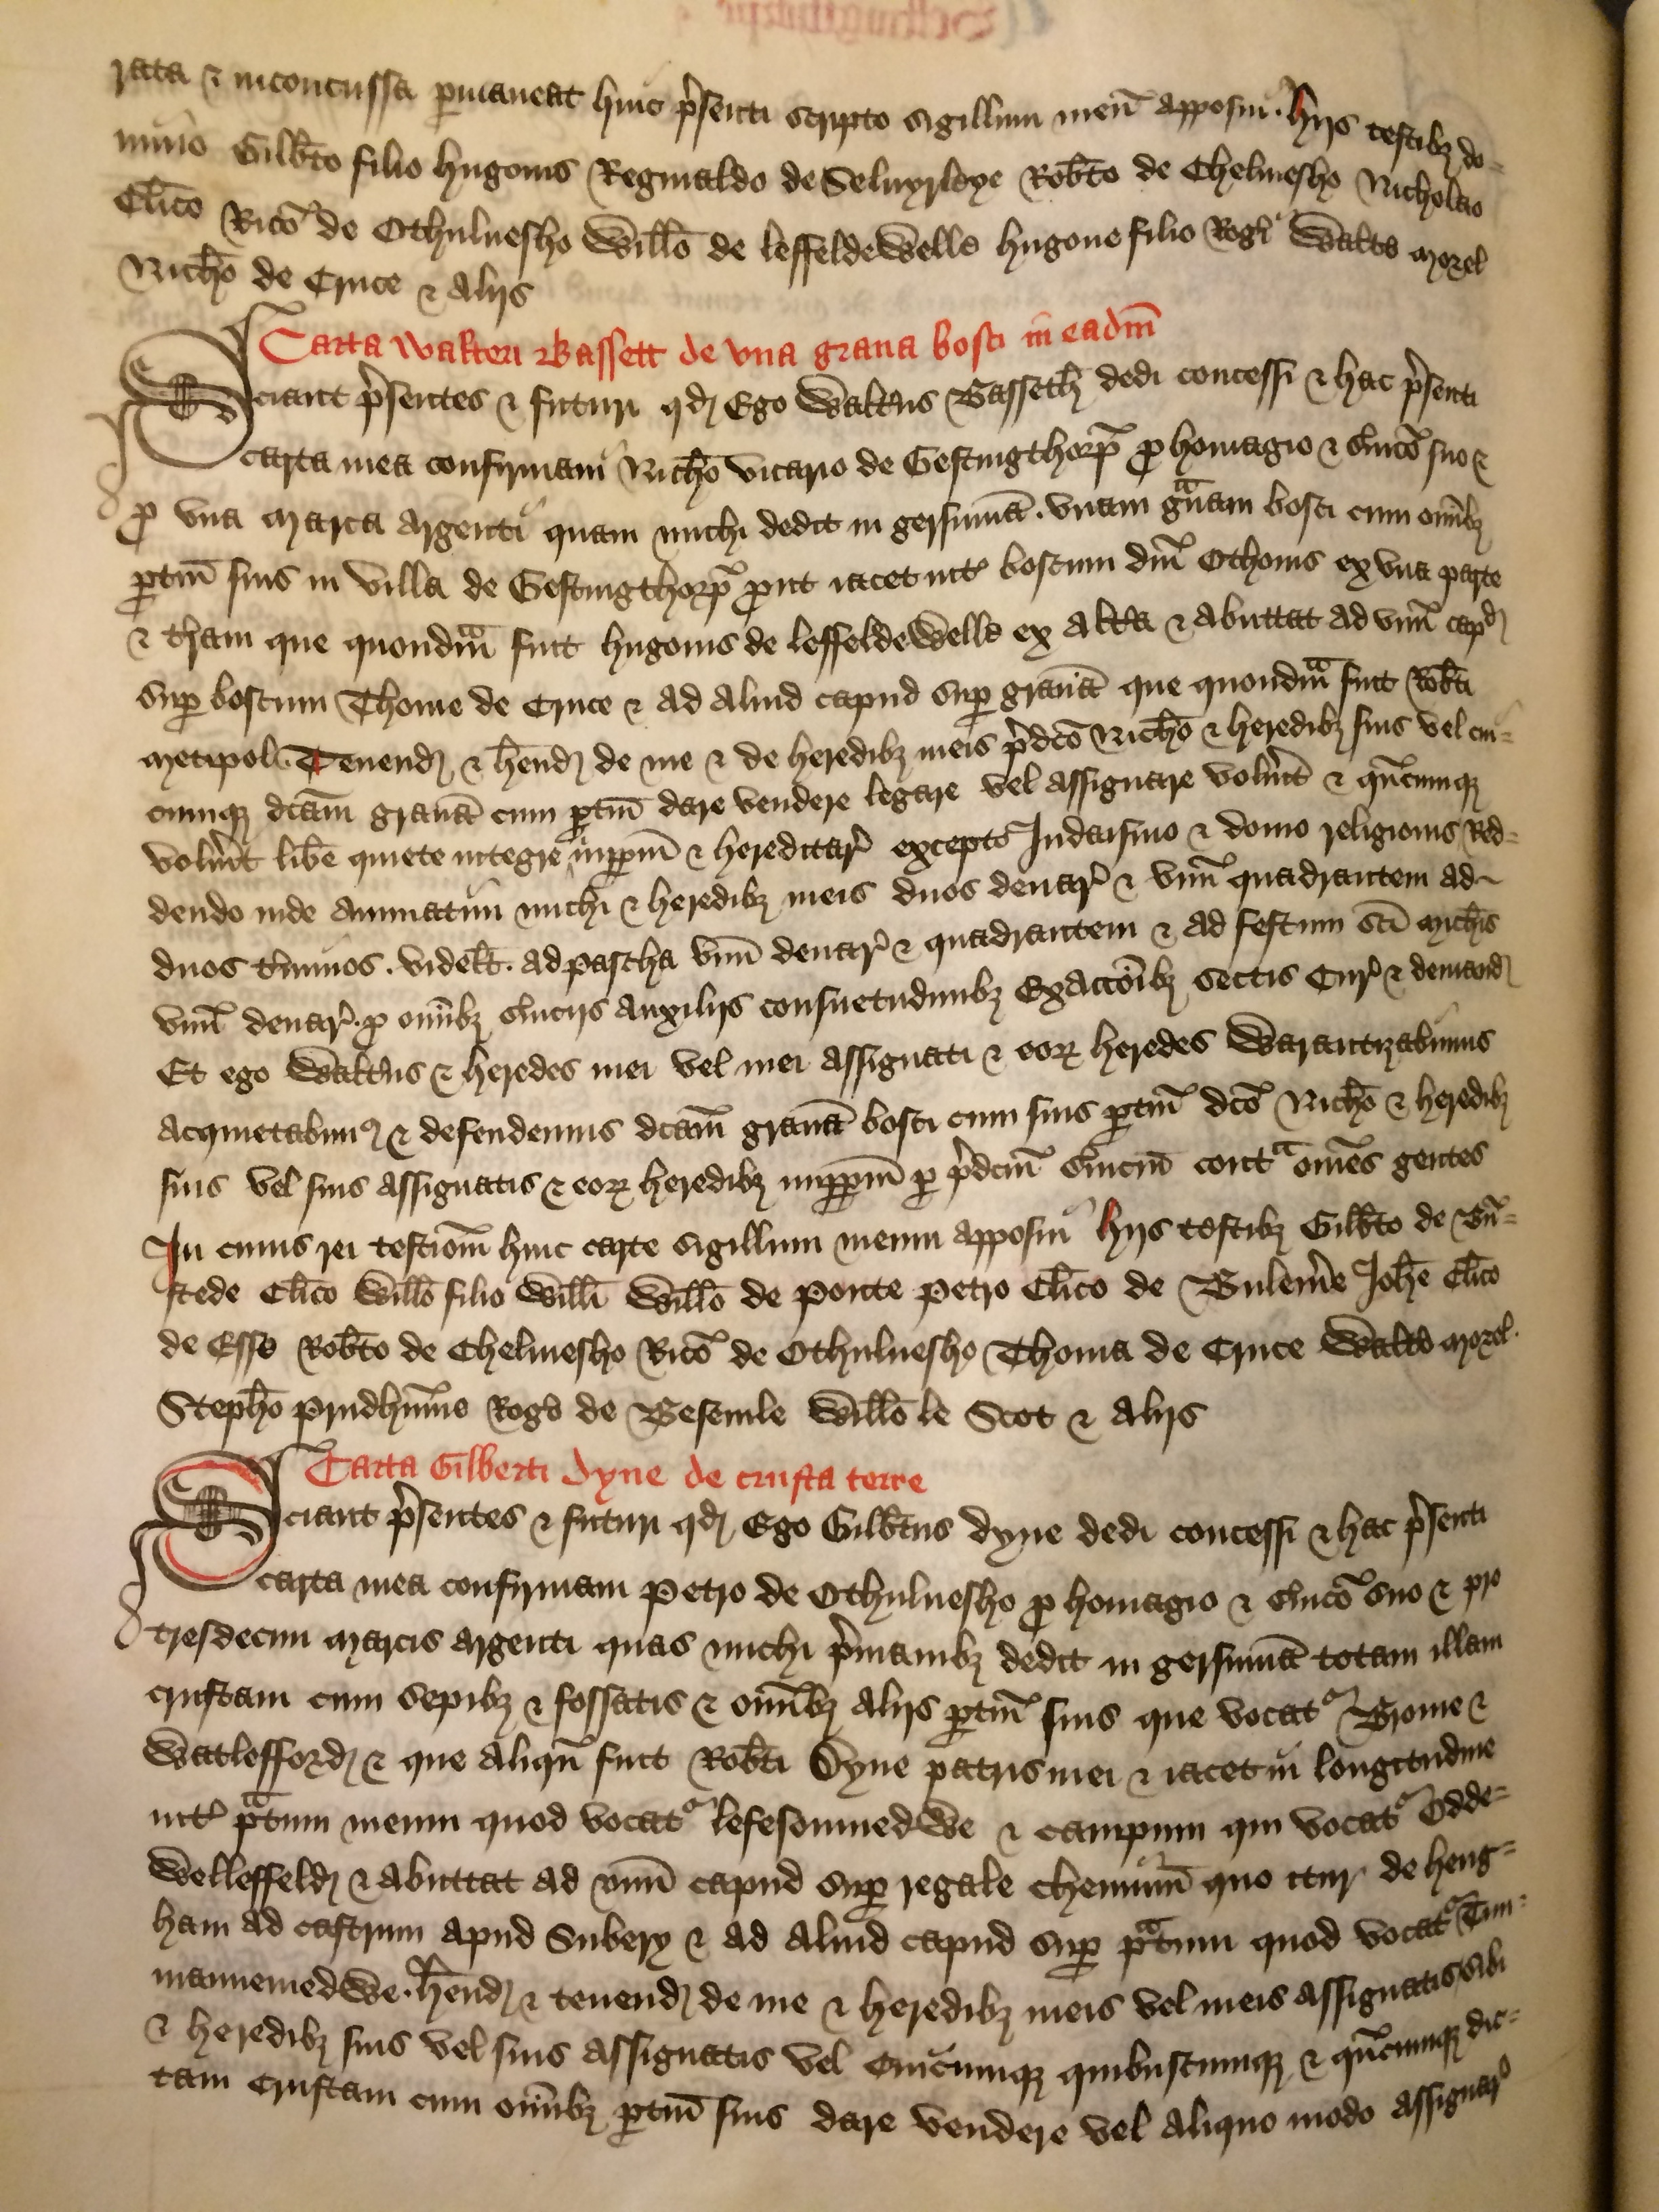 rata & inconcussa p̄maneat huic p̉senti scripto sigillum meū apposui. hijs testibȝ do-
mino Gilb̄to filio hugonis Reginaldo de Seluyrloye Rob̄to de Chelmesho Nicholao
Cl̄ico Rico de Othuluesho Willo de leffeldewelle hugone filio Rogi Walto Morel
Nicho de Cruce & alijs
Carta Walteri Bassett de vna graua bosci in eadm̄
Sciant p̉sentes & futuri qd Ego Walt̄us Basseth dedi concessi & hac p̉senti
carta mea confirmaui Nicho vicario de Gestingthorp̄ ꝓ homagio & s̉uico suo &
ꝓ vna marca argenti quam michi dedit in gersumā. vnam g̉uam bosci cum om̄ibȝ
ꝑtin̄ suis in villa de Gestingthorp̄ ꝓut iacet int̉ boscum dn̄i Othonis ex vna parte
& t̉ram que quondam fuit hugonis de leffeldewelle ex alt̉a & abuttat ad vnū capd
sup̱ boscum Thome de Cruce & ad aliud capud sup̱ grauā que quondam fuit Rob̄ti
Metipol. Tenend & h̄end de me & de heredibȝ meis p̉dco Nicho & heredibȝ suis vel cui-
cumqȝ dcam̄ grauā cum ꝑtin̄ dare vendere legare vel assignare voluit̄ & qn̄cumqȝ
voluit̄ lib̄e quiete integre inꝑpm̄ & hereditar̉ excepto Iudaismo & domo religionis Red-
dendo inde annuatim michi & heredibȝ meis duos denar̉ & vnū quadrantem ad
duos t̉minos. videlt̄. ad pascha vnū denar̉ & quadrantem & ad festum sc̄i Mich̄is
vnū denar̉. ꝓ om̄ibȝ s̉uicijs auxilijs consuetudinibȝ Exacco̅ibȝ sectis Cur̉ & demand
Et ego Walt̄us & heredes mei vel mei assignati & eoꝝ heredes Warantizabimus
acquietabimꝰ & defendemus dcam̄ grauā bosci cum suis ꝑtin̄ dco Nicho & heredibȝ
suis vel suis assignatis & eoꝝ heredibȝ inꝑpm̄ ꝑ p̉dcm̄ s̉uiciū contᵃ om̄es gentes
In cuius rei testio̅m huic carte sigillum meum apposui hijs testibȝ Gilb̄to de Bu̅-
stede Cl̄ico Willo filio Willi Willo de Ponte Petro Cl̄ico de Bulem̉e Joh̄e Cl̄ico
de Esse Rob̄to de Chelmesho Rico de Othuluesho Thoma de Cruce Walto Morel.
Stepho Prudhum̄e Rogo de Besemle Willo le Scot & alijs
Carta Gilberti dyne de crufta terre
Sciant p̉sentes & futuri qd Ego Gilb̄tus dyne dedi concessi & hac p̉senti
carta mea confirmaui Petro de Othuluesho ꝓ homagio & s̉uico suo & pro
tresdecim marcis argenti quas michi p̉manibȝ dedit in gersumā totam illam
cruftam cum sepibȝ & fossatis & om̄ibȝ alijs ꝑtin̄ suis que vocatᵘʳ Brome &
Watlefford & que aliqn̄ fuit Rob̄ti Dyne patris mei & iacet in longitudine
int̉ pᵃtum meum quod vocatᵘʳ lefesonmedwe & campum qui vocatᵘʳ Odde-
Welleffeld & abuttat ad vnū capud sup̱ regale cheminū quo itur de heng-
ham ad castrum apud Subery & ad aliud capud sup̱ pᵃtum quod vocatᵘʳ Tun-
mannemedwe. h̄end & tenend de me & heredibȝ meis vel meis assignatis sibi
& heredibȝ suis vel suis assignatis vel Cuicumqȝ quibuscumqȝ & qn̄cumqȝ dic-
tam cruftam cum om̄ibȝ ꝑtin̄ suis dare vendere vel aliquo modo assignar̉